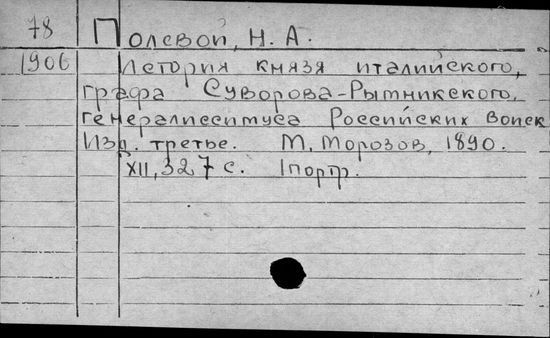 78 Полевой, Н. А.
1906 История князя италийского,
графа Суворова-Рытникского,
генералиссимуса Российских войск
Изд. третье. М, Морозов, 1890.
XII, 327 с. 1 портр.